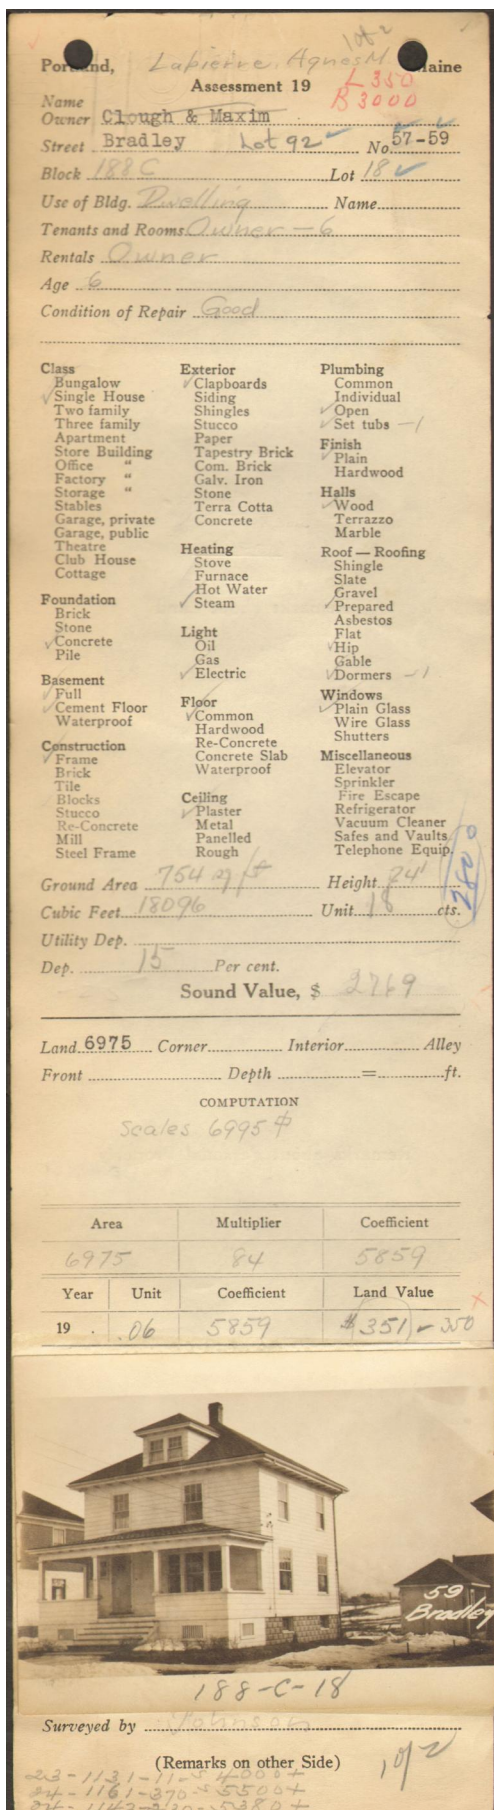 1 of 2
Portland, Lapierre, Agnes M. Maine
Assessment 19 L 350
B 3000
Name
Owner Clough & Maxim
Street Bradley Lot 92 No. 57-59
Block 188 C Lot 18
Use of Bldg. Dwelling Name
Tenants and Rooms Owner - 6
Rentals Owner
Age 6
Condition of Repair Good
Class
Bungalow
Single House
Two family
Three family
Apartment
Store Building
Office "
Factory "
Storage "
Stables
Garage, private
Garage, public
Theatre
Club House
Cottage
Foundation
Brick
Stone
Concrete
Pile
Basement
Full
Cement Floor
Waterproof
Construction
Frame
Brick
Tile
Blocks
Stucco
Re-Concrete
Mill
Steel Frame
Exterior
Clapboards
Siding
Shingles
Stucco
Paper
Tapestry Brick
Com. Brick
Galv. Iron
Stone
Terra Cotta
Concrete
Heating
Stove
Furnace
Hot Water
Steam
Light
Oil
Gas
Electric
Floor
Common
Hardwood
Re-Concrete
Concrete Slab
Waterproof
Ceiling
Plaster
Metal
Panelled
Rough
Plumbing
Common
Individual
Open
Set tubs - 1
Finish
Plain
Hardwood
Halls
Wood
Terrazzo
Marble
Roof — Roofing
Shingle
Slate
Gravel
Prepared
Asbestos
Flat
Hip
Gable
Dormers - 1
Windows
Plain Glass
Wire Glass
Shutters
Miscellaneous
Elevator
Sprinkler
Fire Escape
Refrigerator
Vacuum Cleaner
Safes and Vaults
Telephone Equip.
2800
Ground Area 754 sq ft Height 24'
Cubic Feet 18096 Unit 18 cts.
Utility Dep.
Dep. 15 Per cent.
Sound Value, $ 2769
Land 6975 Corner Interior Alley
Front Depth = ft.
COMPUTATION
Scales 6995
Area Multiplier Coefficient
6975 84 5859
Year Unit Coefficient Land Value
19 .06 5859 $351 - 350
59
Bradley
188-C-18
Surveyed by Johnson
(Remarks on other Side)
1 of 2
23-1131-11-$4000+
24-1161-370-$5500+